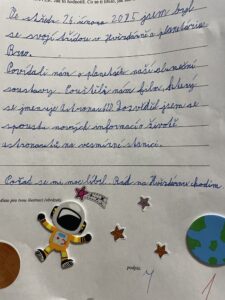 Ve středu 26. února 2025 jsem byl
se svojí třídou v Hvězdárně a planetáriu
Brno.
Povídali nám o planetách naší sluneční
soustavy. Pouštěli nám film, který
se jmenuje Astronaut. Dozvěděl jsem se
spousta nových informací o životě
astronautů na vesmírné stanici.
Pořad se mi moc líbil. Rád na Hvězdárnu chodím
podpis:
1